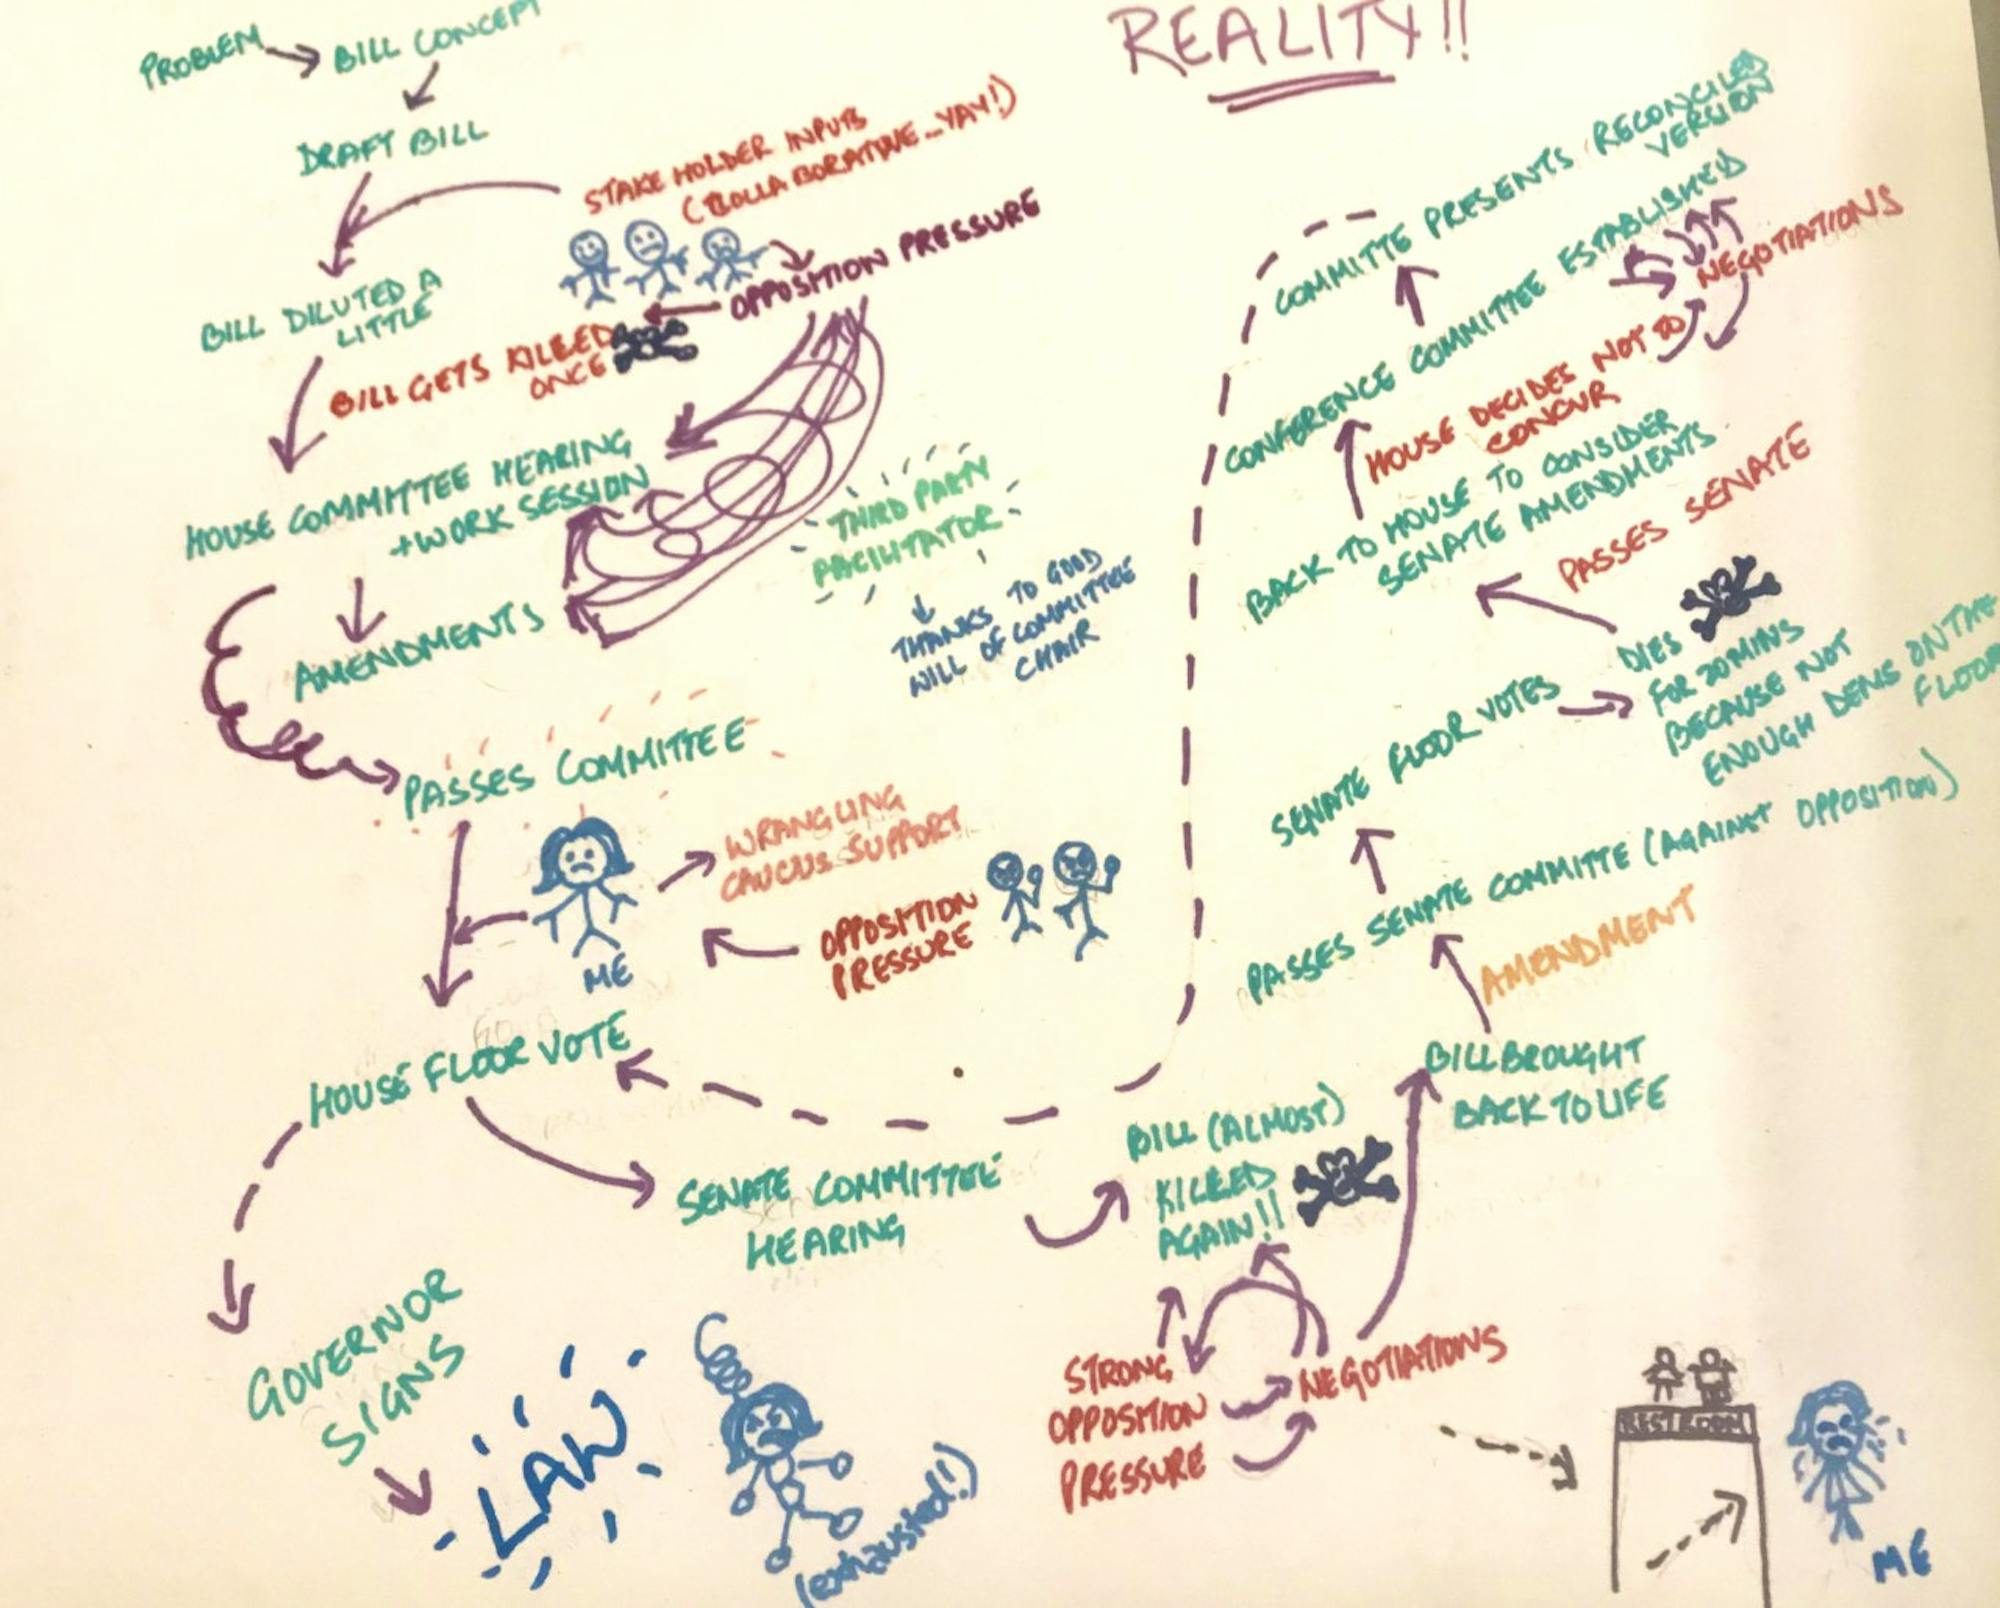 REALITY!!
PROBLEM
BILL CONCEPT
DRAFT BILL
STAKE HOLDER INPUTS
(COLLABORATIVE_YAY!)
OPPOSITION PRESSURE
BILL DILUTED A
LITTLE
BILL GETS KILLED
ONCE
HOUSE COMMITTEE HEARING
+WORK SESSION
AMENDMENTS
THIRD PARTY
FACILITATOR
THANKS TO GOOD
WILL OF COMMITTEE
CHAIR
PASSES COMMITTEE
ME
WRANGLING
CAUCUS SUPPORT
OPPOSITION
PRESSURE
HOUSE FLOOR VOTE
SENATE COMMITTEE
HEARING
BILL (ALMOST)
KILLED
AGAIN!!
STRONG
OPPOSITION
PRESSURE
NEGOTIATIONS
RESTROOM
ME
BILL BROUGHT
BACK TO LIFE
AMENDMENT
PASSES SENATE COMMITTE (AGAINST OPPOSITION)
SENATE FLOOR VOTES
DIES
FOR 20 MINS
BECAUSE NOT
ENOUGH DEMS ON THE
FLOOR
PASSES SENATE
BACK TO HOUSE TO CONSIDER
SENATE AMENDMENTS
HOUSE DECIDES NOT TO
CONCUR
CONFERENCE COMMITTEE ESTABLISHED
NEGOTIATIONS
COMMITTE PRESENTS RECONCILED
VERSION
GOVERNOR
SIGNS
LAW
(exhausted!)